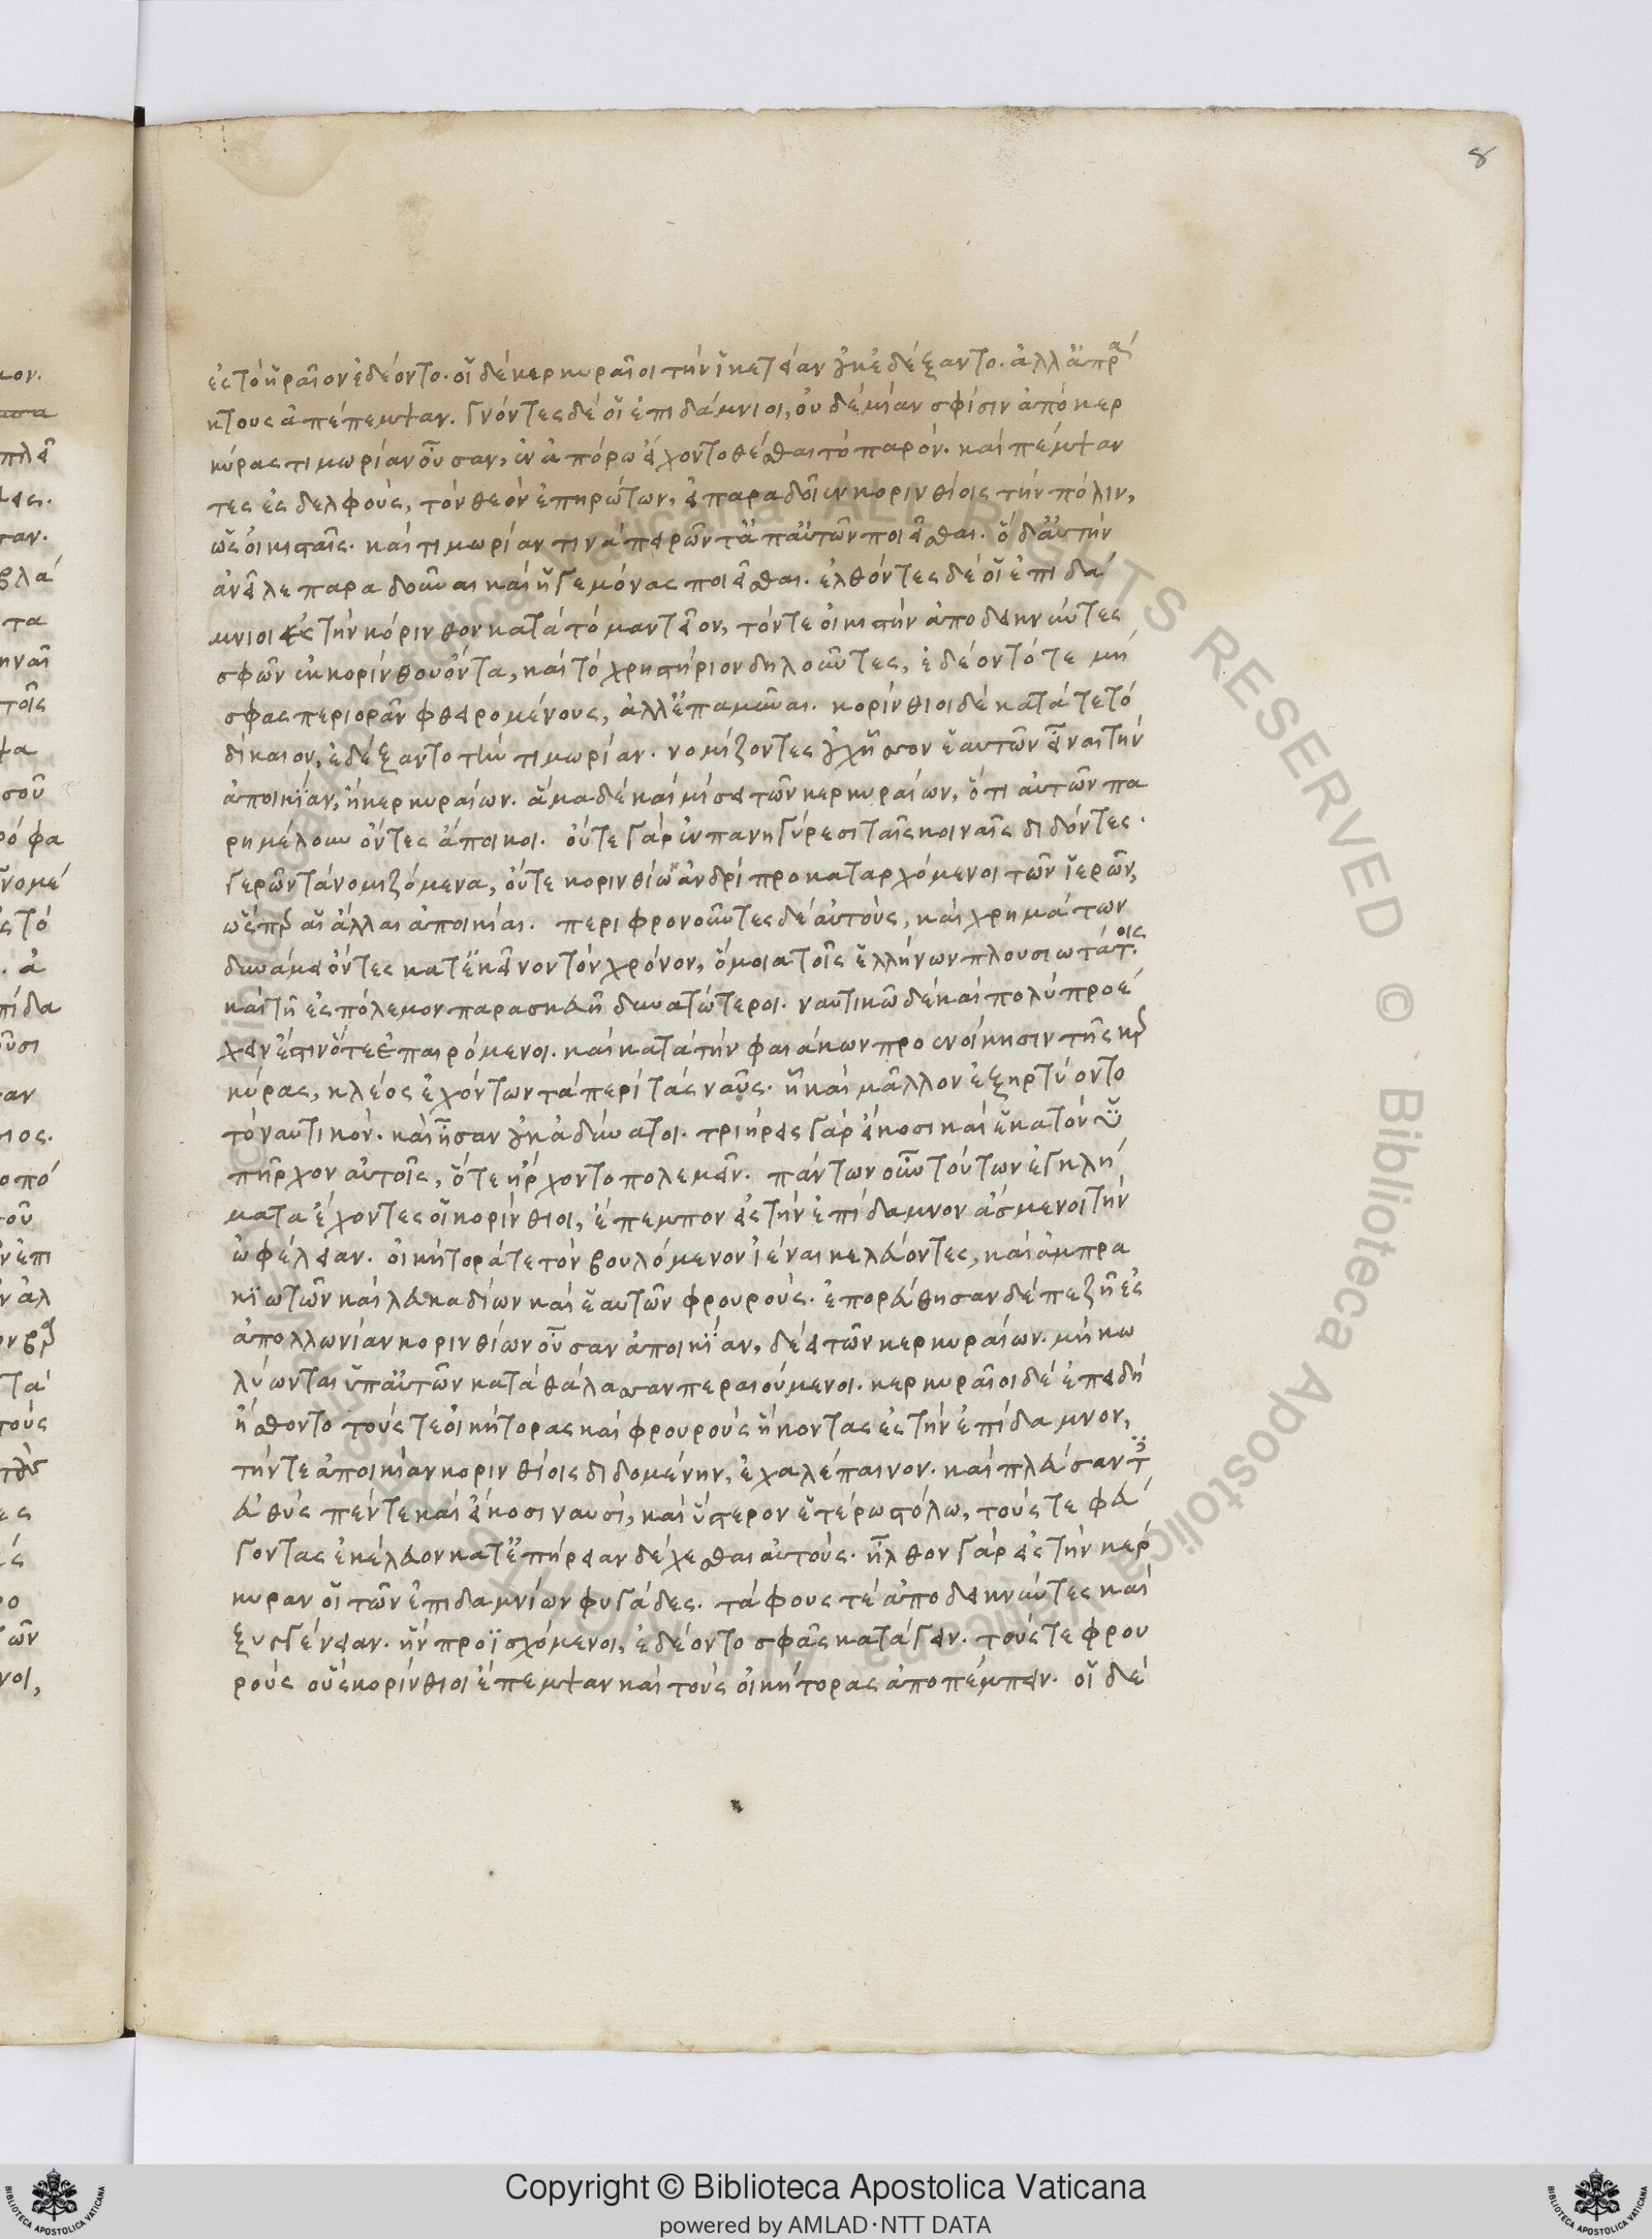 8
ἐς τὸ ἥραιον ἐδέοντο. οἱ δὲ κερκυραῖοι τὴν ἱκετείαν οὐκ ἐδέξαντο. ἀλλ' ἀπρά
κτους ἀπέπεμψαν. γνόντες δὲ οἱ ἐπιδάμνιοι, οὐδεμίαν σφίσιν ἀπὸ κερ
κύρας τιμωρίαν οὖσαν, ἐν ἀπόρω εἴχοντο θέσθαι τὸ παρόν. καὶ πέμψαν
τες ἐς δελφοὺς, τὸν θεὸν ἐπηρώτων, εἰ παραδοῖεν κορινθίοις τὴν πόλιν,
ὡς οἰκισταῖς. καὶ τιμωρίαν τινὰ πειρῶντ' ἀπ' αὐτῶν ποιεῖσθαι. ὁ δ' αὐτὴν
ἀνεῖλε παραδοῦναι καὶ ἡγεμόνας ποιεῖσθαι. ἐλθόντες δὲ οἱ ἐπιδά
μνιοι ἐς τὴν κόρινθον κατὰ τὸ μαντεῖον, τόν τε οἰκιστὴν ἀποδεικνύντες
σφῶν ἐκ κορίνθου ὄντα, καὶ τὸ χρηστήριον δηλοῦντες, ἐδέοντό τε μὴ
σφᾶς περιορᾶν φθειρομένους, ἀλλ' ἐπαμῦναι. κορίνθιοι δὲ κατά τε τὸ
δίκαιον, ἐδέξαντο τὴν τιμωρίαν. νομίζοντες οὐχ ἧσσον ἑαυτῶν εἶναι τὴν
ἀποικίαν, ἢ κερκυραίων. ἅμα δὲ καὶ μίσει τῶν κερκυραίων, ὅτι αὐτῶν πα
ρημέλουν ὄντες ἄποικοι. οὔτε γὰρ ἐν πανηγύρεσι ταῖς κοιναῖς διδόντες.
γερῶν τὰ νομιζόμενα, οὔτε κορινθίω ἀνδρὶ προκαταρχόμενοι τῶν ἱερῶν,
ὥσπερ αἱ ἄλλαι ἀποικίαι. περιφρονοῦντες δὲ αὐτοὺς, καὶ χρημάτων
δυνάμει ὄντες κατ' ἐκεῖνον τὸν χρόνον, ὅμοια τοῖς ἑλλήνων πλουσιωτάτοις.
καὶ τῆ ἐς πόλεμον παρασκευῆ δυνατώτεροι. ναυτικῶ δὲ καὶ πολὺ προέ
χειν ἔστιν ὅτε ἐπαιρόμενοι. καὶ κατὰ τὴν φαιάκων προενοίκησιν τῆς κερ
κύρας, κλέος ἐχόντων τὰ περὶ τὰς ναῦς. ἧ καὶ μᾶλλον ἐξηρτύοντο
τὸ ναυτικόν. καὶ ἦσαν οὐκ ἀδύνατοι. τριήρεις γὰρ εἴκοσι καὶ ἑκατὸν ὑ
πῆρχον αὐτοῖς, ὅτε ἤρχοντο πολεμεῖν. πάντων οὖν τούτων ἐγκλή
ματα ἔχοντες οἱ κορίνθιοι, ἔπεμπον εἰς τὴν ἐπίδαμνον ἄσμενοι τὴν
ὠφέλειαν. οἰκήτορά τε τὸν βουλόμενον ἰέναι κελεύοντες, καὶ ἀμπρα
κιωτῶν καὶ λευκαδίων καὶ ἑαυτῶν φρουρούς. ἐπορεύθησαν δὲ πεζῆ ἐς
ἀπολλωνίαν κορινθίων οὖσαν ἀποικίαν, δέει τῶν κερκυραίων. μὴ κω
λύωνται ὑπ' αὐτῶν κατὰ θάλασσαν περαιούμενοι. κερκυραῖοι δὲ ἐπειδὴ
ἤσθοντο τούς τε οἰκήτορας καὶ φρουροὺς ἥκοντας ἐς τὴν ἐπίδαμνον,
τήν τε ἀποικίαν κορινθίοις διδομένην, ἐχαλέπαινον. καὶ πλεύσαντες
εὐθὺς πέντε καὶ εἴκοσι ναυσὶ, καὶ ὕστερον ἑτέρω στόλω, τούς τε φεύ
γοντας ἐκέλευον κατ' ἐπήρειαν δέχεσθαι αὐτούς. ἦλθον γὰρ εἰς τὴν κέρ
κυραν οἱ τῶν ἐπιδαμνίων φυγάδες. τάφους τὲ ἀποδεικνύντες καὶ
ξυγγένειαν. ἣν προϊσχόμενοι, ἐδέοντο σφᾶς κατάγειν. τούς τε φρου
ροὺς οὓς κορίνθιοι ἔπεμψαν καὶ τοὺς οἰκήτορας ἀποπέμπειν. οἱ δὲ
Copyright © Biblioteca Apostolica Vaticana
powered by AMLAD·NTT DATA